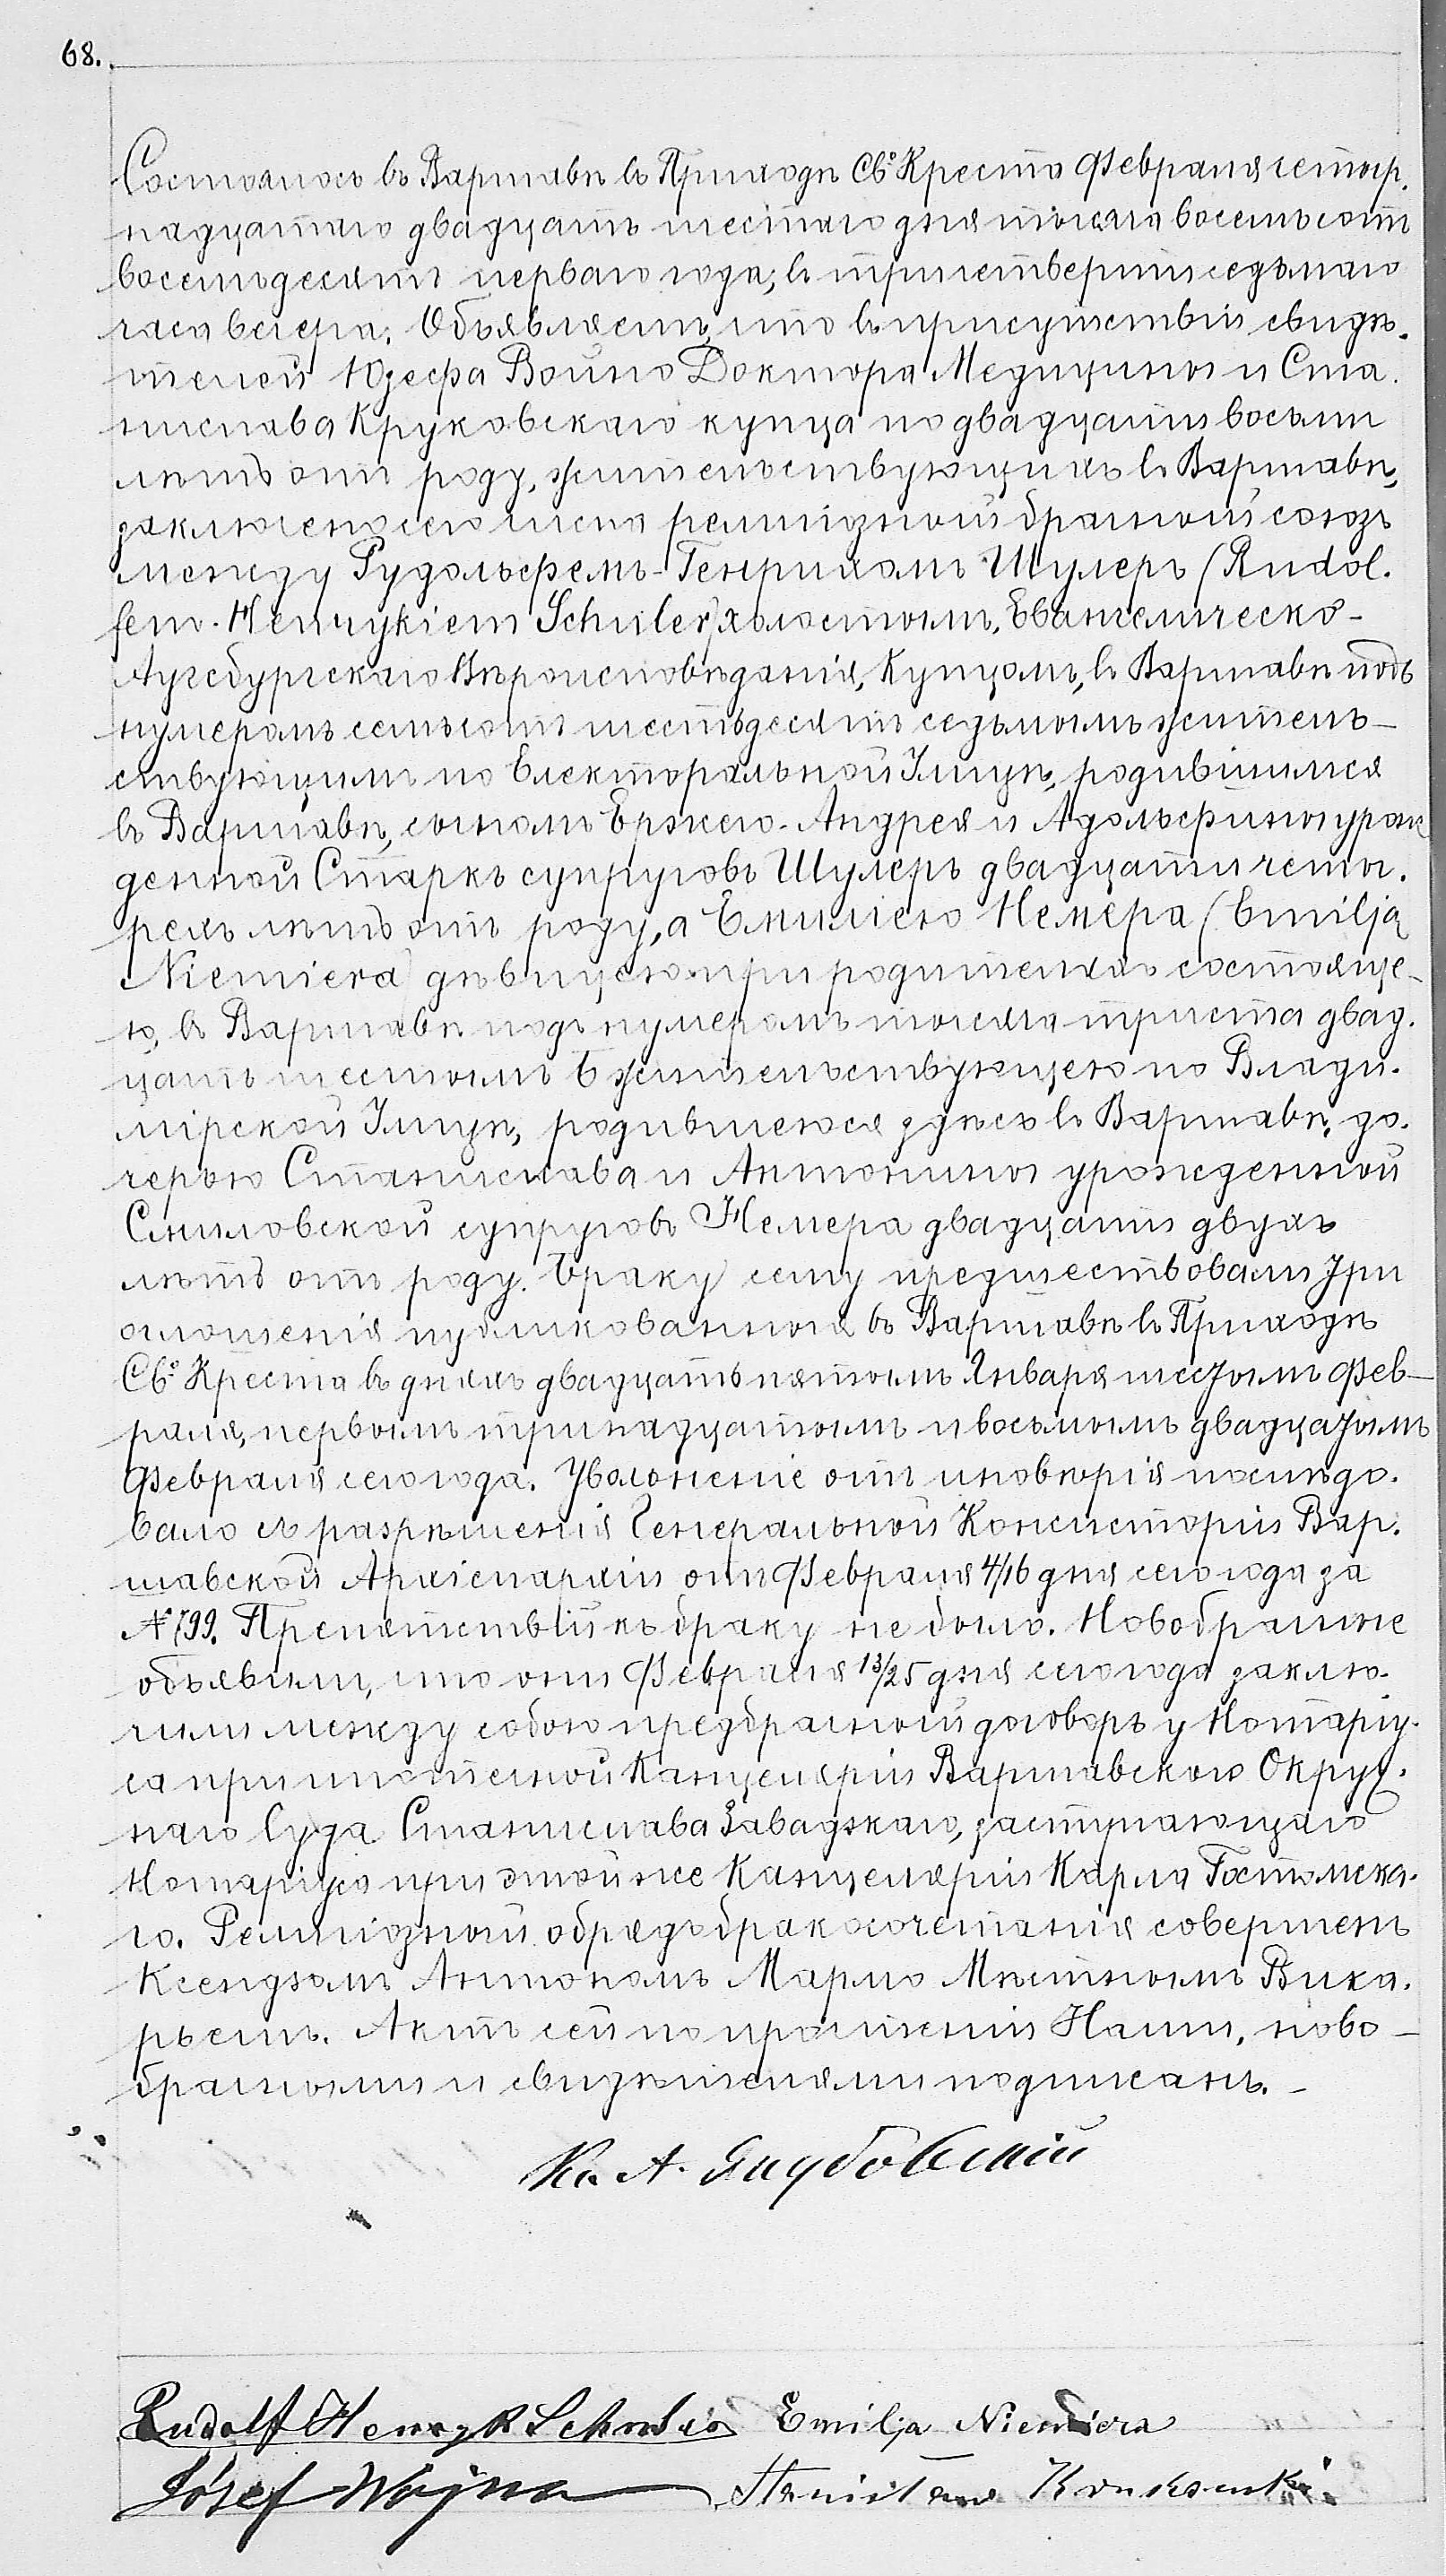 68.
Состоялось въ Варшавѣ въ Приходѣ Св.º Креста Февраля четыр.
надцатаго двадцать шестаго дня тысяча восемьсотъ
восемьдесятъ перваго года, въ три четверти седьмаго
часа вечера. Объявляемъ, что въ присутствіи свидѣ.
телей Юзефа Войно Доктора Медицины и Ста.
нислава Круковскаго купца по двадцати восьми
лѣтъ отъ роду, жительствующихъ въ Варшавѣ,
заключенъ сего числа религіозный брачный союзъ
между Рудольфемъ-Генрихомъ Шулеръ (Rudol.
fem-Henrykiem Schuler) холостымъ, Евангелическо-
Аугсбургскаго Вѣроисповѣданія, Купцомъ, въ Варшавѣ подъ
нумеромъ семьсотъ шестьдесятъ седьмымъ житель-
ствующимъ по Електоральной Улицѣ, родившимся
въ Варшавѣ, сыномъ Ержего-Андрея и Адольфины урож
денной Старкъ супруговъ Шулеръ двадцати четы.
рехъ лѣтъ отъ роду, а Емиліею Немера (Emilją
Niemiera) дѣвицею при родителяхъ состояще-
ю, въ Варшавѣ подъ нумеромъ тысяча триста двад.
цать шестымъ Б жительствующею по Влади.
мірской Улицѣ, родившеюся здѣсь въ Варшавѣ, до.
черью Станислава и Антонины урожденной
Смиловской супруговъ Немера двадцати двухъ
лѣтъ отъ роду. Браку сему предшествовали три
оглашенія публикованныя въ Варшавѣ въ Приходѣ
Св.º Креста въ дняхъ двадцать пятомъ Января шестомъ Фев-
раля, первымъ тринадцатымъ и восьмымъ двадцатымъ
Февраля сего года. Уволоненіе отъ иновѣрія послѣдо.
вало съ разрѣшенія Генеральной Консисторіи Вар.
шавской Архіепархіи отъ Февраля 4/16 дня сего года за
№ 799. Препятствій къ браку не было. Новобрачные
объявили, что они Февраля 13/25 дня сего года заклю.
чили между собою предбрачный договоръ у Нотаріу.
са при ипотечной Канцеляріи Варшавскаго Окруж.
наго Суда Станислава Завадзкаго, заступающаго
Нотаріуса при этой же Канцеляріи Карла Гостомска.
го. Религіозный обрядъ бракосочетанія совершенъ
Ксендзомъ Антономъ Мармо Мѣстнымъ Вика.
рьемъ. Актъ сей по прочтеніи Нами, ново-
брачными и свидѣтелями подписанъ.-
Кс. А. Якубовскій
Rudolf Henryk Schuler Emilja Niemiera
Józef Wojno Stanisław Krukowski